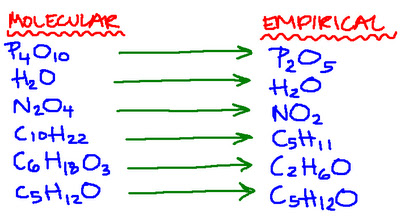 MOLECULAR → EMPIRICAL
P₄O₁₀ → P₂O₅
H₂O → H₂O
N₂O₄ → NO₂
C₁₀H₂₂ → C₅H₁₁
C₆H₁₈O₃ → C₂H₆O
C₅H₁₂O → C₅H₁₂O